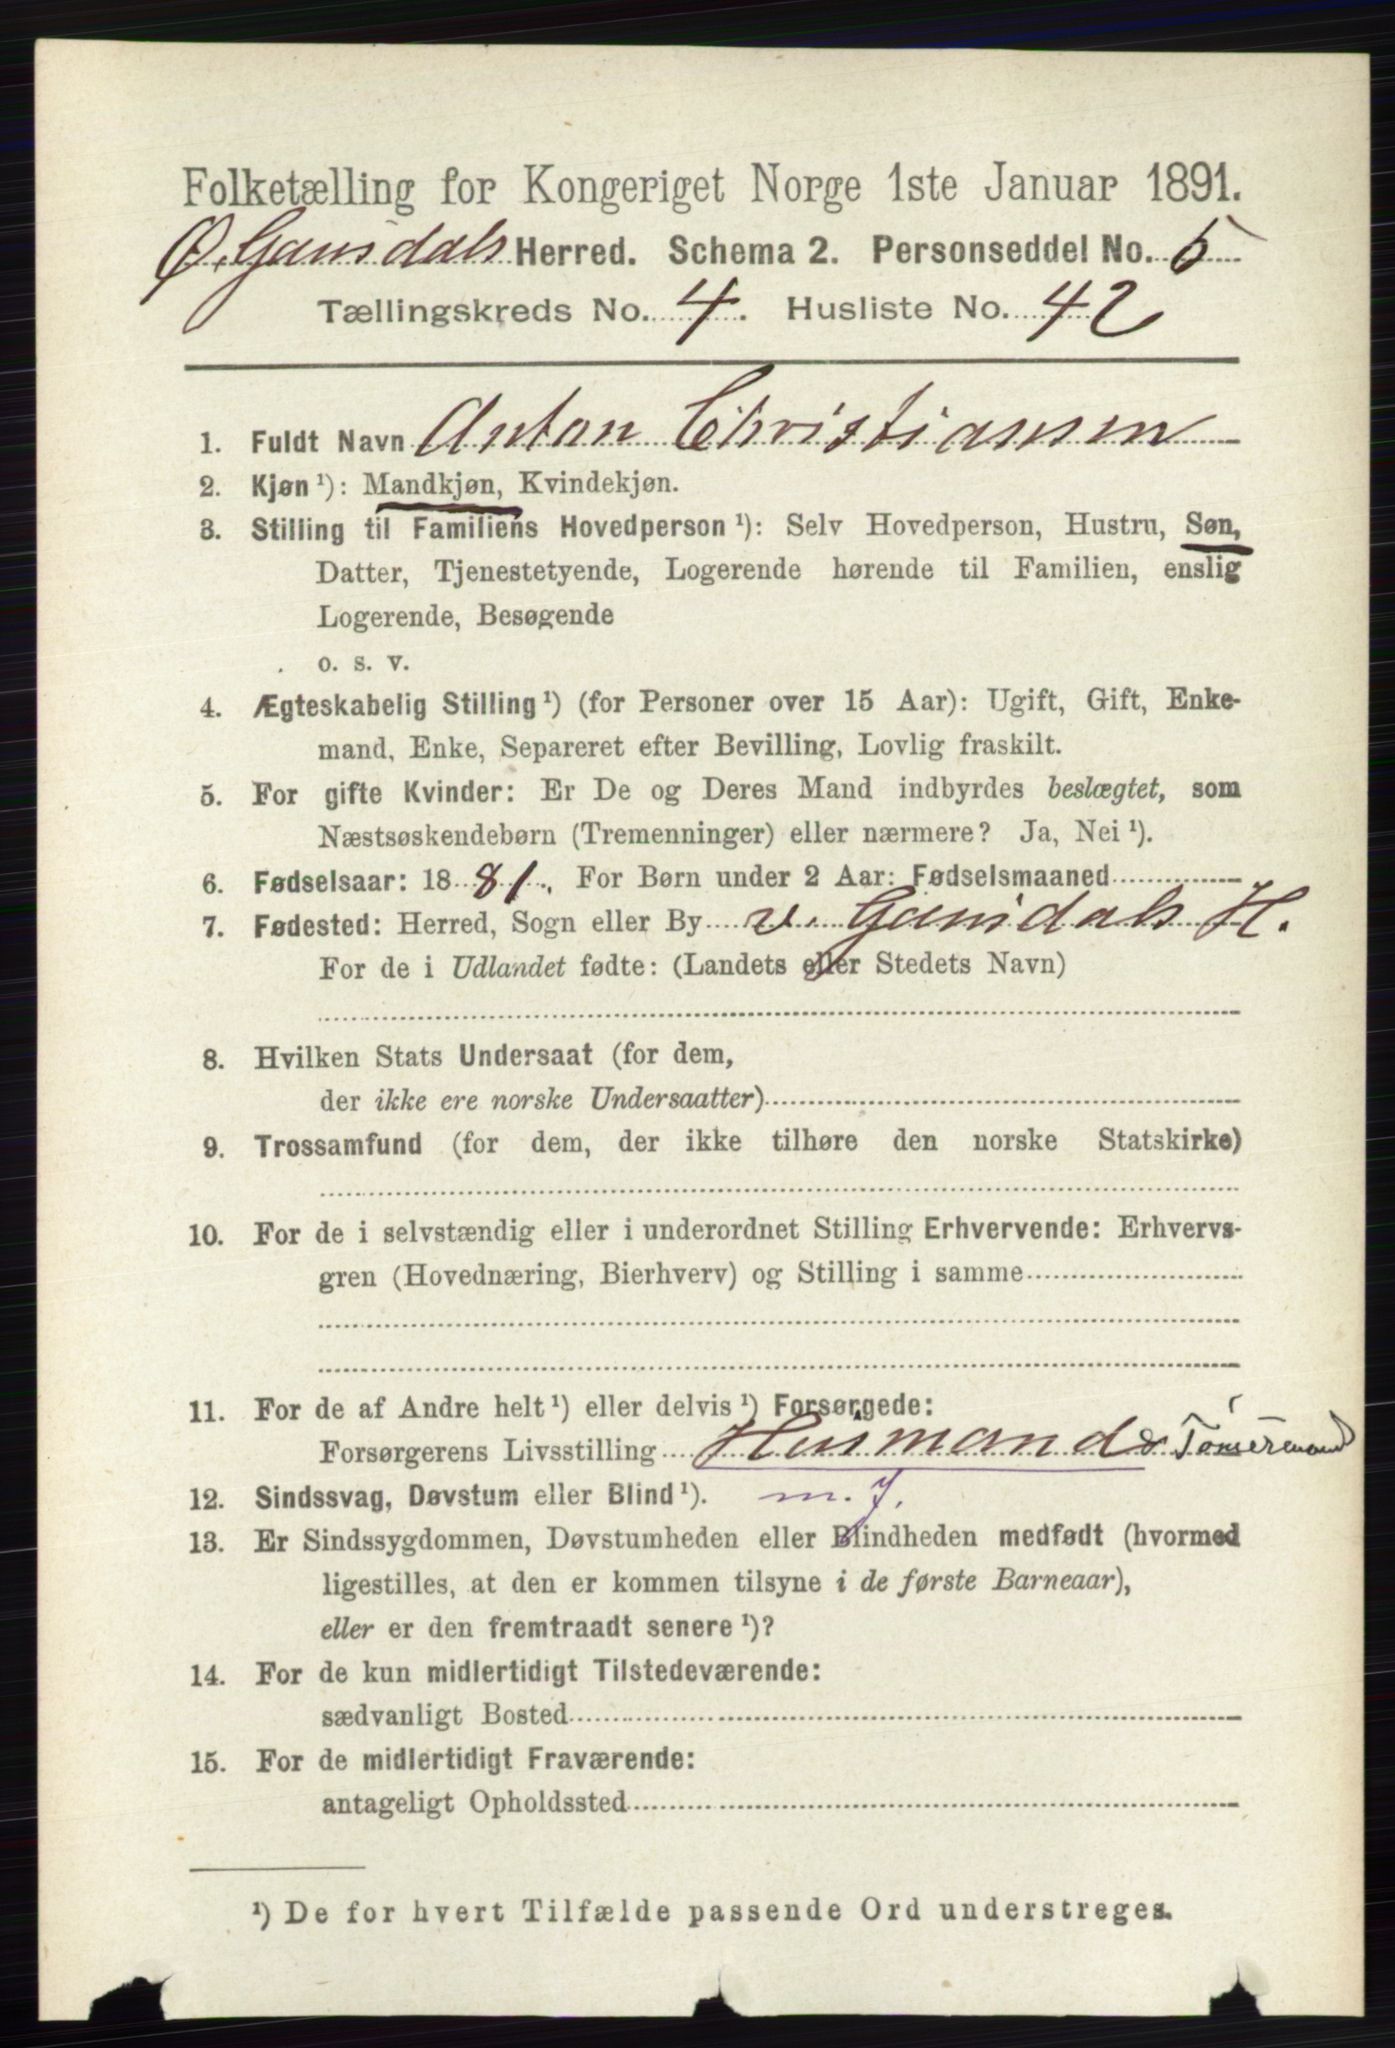 Folketælling for Kongeriget Norge 1ste Januar 1891.
Ø. Gausdals Herred. Schema 2. Personseddel No. 5
Tællingskreds No. 4. Husliste No. 42
1. Fuldt Navn Anton Christiansen
2. Kjøn ¹): Mandkjøn, Kvindekjøn.
3. Stilling til Familiens Hovedperson ¹): Selv Hovedperson, Hustru, Søn,
Datter, Tjenestetyende, Logerende hørende til Familien, enslig
Logerende, Besøgende
o. s. v.
4. Ægteskabelig Stilling ¹) (for Personer over 15 Aar): Ugift, Gift, Enke-
mand, Enke, Separeret efter Bevilling, Lovlig fraskilt.
5. For gifte Kvinder: Er De og Deres Mand indbyrdes beslægtet, som
Næstsøskendebørn (Tremenninger) eller nærmere? Ja, Nei ¹).
6. Fødselsaar: 1881. For Børn under 2 Aar: Fødselsmaaned
7. Fødested: Herred, Sogn eller By v. Gausdals H.
For de i Udlandet fødte: (Landets eller Stedets Navn)
8. Hvilken Stats Undersaat (for dem,
der ikke ere norske Undersaatter)
9. Trossamfund (for dem, der ikke tilhøre den norske Statskirke)
10. For de i selvstændig eller i underordnet Stilling Erhvervende: Erhvervs-
gren (Hovednæring, Bierhverv) og Stilling i samme
11. For de af Andre helt ¹) eller delvis ¹) Forsørgede:
Forsørgerens Livsstilling Husmand & Tømmermand
12. Sindssvag, Døvstum eller Blind ¹). m. J.
13. Er Sindssygdommen, Døvstumheden eller Blindheden medfødt (hvormed
ligestilles, at den er kommen tilsyne i de første Barneaar),
eller er den fremtraadt senere ¹)?
14. For de kun midlertidigt Tilstedeværende:
sædvanligt Bosted
15. For de midlertidigt Fraværende:
antageligt Opholdssted
¹) De for hvert Tilfælde passende Ord understreges.